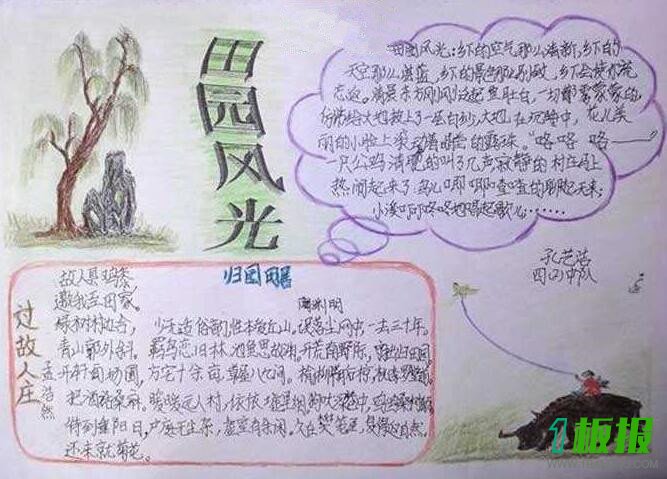 田园风光
田园风光：乡下的空气那么清新，乡下的
天空那么湛蓝，乡下的景色那么别致，乡下会使你流
连忘返。清晨东方刚刚泛起鱼肚白，一切都雾蒙蒙的，
仿佛给大地披上了一层白纱，大地在沉睡中，花儿美
丽的小脸上滚动着晴莹的露珠。“咯咯咯——”
一只公鸡清脆的叫了几声寂静的村庄马上
热闹起来了 鸟儿唧唧喳喳的
小溪叮叮咚咚地唱起歌儿……
孔艺浩
四(2)中队
过故人庄
孟浩然
故人具鸡黍，
邀我至田家。
绿树村边合，
青山郭外斜。
开轩面场圃，
把酒话桑麻。
待到重阳日，
还来就菊花。
归园田居
陶渊明
少无适俗韵，性本爱丘山，误落尘网中，一去三十年。
羁鸟恋旧林，池鱼思故渊。开荒南野际，守拙归田园。
方宅十余亩，草屋八九间。榆柳荫后檐，桃李罗堂前。
暧暧远人村，依依墟里烟。狗吠深巷中，鸡鸣桑树颠。
户庭无尘杂，虚室有余闲，久在樊笼里，复得返自然。
1板报